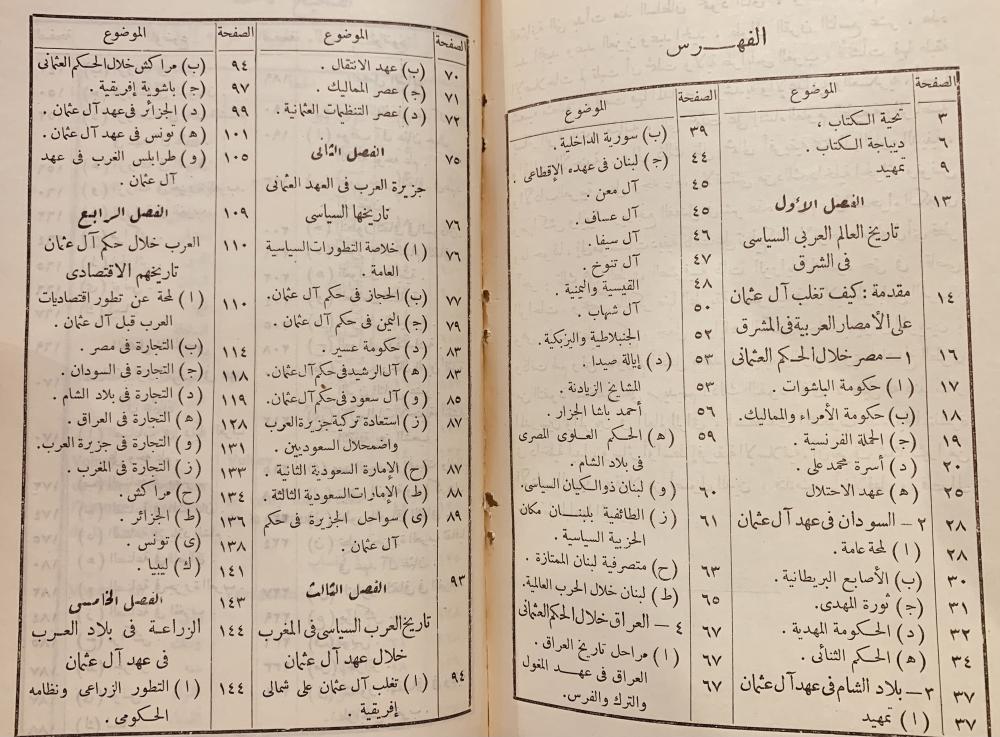 الفهرس
الصفحة الموضوع
٣ تحية الكتاب .
٦ ديباجة الكتاب .
٩ تمهيد
١٣ الفصل الأول
تاريخ العالم العربى السياسى
فى الشرق
١٤ مقدمة : كيف تغلب آل عثمان
على الأمصار العربية فى المشرق
١٦ ١ – مصر خلال الحكم العثمانى
١٧ ( ا ) حكومة الباشوات .
١٨ (ب) حكومة الأمراء والمماليك.
١٩ (ج) الحملة الفرنسية .
٢٠ ( د ) أسرة محمد على .
٢٥ (ه) عهد الاحتلال
٢٨ ٢ – السودان فى عهد آل عثمان
٢٨ ( ا ) لمحة عامة .
٣٠ (ب) الأصابع البريطانية .
٣١ (ج) ثورة المهدى.
٣٢ ( د ) الحكومة المهدية .
٣٤ (ه) الحكم الثنائى .
٣٧ ٣ – بلاد الشام فى عهد آل عثمان
٣٧ ( ا ) تمهيد
الصفحة الموضوع
٣٩ (ب) سورية الداخلية .
٤٤ (ج) لبنان فى عهده الإقطاعى .
٤٥ آل معن .
٤٥ آل عساف .
٤٦ آل سيفا .
٤٧ آل تنوخ .
٤٨ القيسية واليمنية .
٥٠ آل شهاب .
٥٢ الجنبلاطية واليزبكية.
٥٣ ( د ) إيالة صيدا .
٥٣ المشايخ الزيادنة .
٥٦ أحمد باشا الجزار .
٥٩ (ه) الحكم العلوى المصرى
فى بلاد الشام .
٦٠ (و) لبنان ذو الكيان السياسى.
٦١ (ز) الطائفية بلبنان مكان
الحزبية السياسية .
٦٣ (ح) متصرفية لبنان الممتازة .
٦٥ (ط) لبنان خلال الحرب العالمية.
٦٧ ٤ – العراق خلال الحكم العثمانى
٦٧ ( ا ) مراحل تاريخ العراق .
٦٧ العراق فى عهد المغول
والترك والفرس.
الصفحة الموضوع
٧٠ (ب) عهد الانتقال .
٧١ (ج) عصر المماليك .
٧٢ ( د ) عصر التنظيمات العثمانية .
٧٥ الفصل الثانى
جزيرة العرب فى العهد العثمانى
٧٦ تاريخها السياسى
٧٦ ( ا ) خلاصة التطورات السياسية
العامة .
٧٧ (ب) الحجاز فى حكم آل عثمان.
٧٩ (ج) اليمن فى حكم آل عثمان .
٨٣ ( د ) حكومة عسير .
٨٣ (ه) آل الرشيد فى حكم آل عثمان.
٨٥ (و) آل سعود فى حكم آل عثمان.
٨٧ (ز) استعادة تركية جزيرة العرب
واضمحلال السعوديين .
٨٧ (ح) الإمارة السعودية الثانية .
٨٨ (ط) الإمارات السعودية الثالثة .
٨٩ (ى) سواحل الجزيرة فى حكم
آل عثمان .
٩٣ الفصل الثالث
تاريخ العرب السياسى فى المغرب
خلال عهد آل عثمان
٩٤ ( ا ) تغلب آل عثمان على شمالى
إفريقية .
الصفحة الموضوع
٩٤ (ب) مراكش خلال الحكم العثمانى
٩٧ (ج) باشوية إفريقية .
٩٩ ( د ) الجزائر فى عهد آل عثمان .
١٠١ (ه) تونس فى عهد آل عثمان .
١٠٥ (و) طرابلس الغرب فى عهد
آل عثمان .
١٠٩ الفصل الرابع
١١٠ العرب خلال حكم آل عثمان
تاريخهم الاقتصادى
١١٠ ( ا ) لمحة عن تطور اقتصاديات
العرب قبل آل عثمان .
١١٤ (ب) التجارة فى مصر .
١١٨ (ج) التجارة فى السودان .
١١٩ ( د ) التجارة فى بلاد الشام .
١٢٨ (ه) التجارة فى العراق .
١٣١ (و) التجارة فى جزيرة العرب.
١٣٣ (ز) التجارة فى المغرب .
١٣٤ (ح) مراكش .
١٣٦ (ط) الجزائر .
١٣٨ (ى) تونس .
١٤١ (ك) ليبيا .
١٤٣ الفصل الخامس
١٤٤ الزراعة فى بلاد العرب
فى عهد آل عثمان
١٤٤ ( ا ) التطور الزراعى ونظامه
الحكومى .